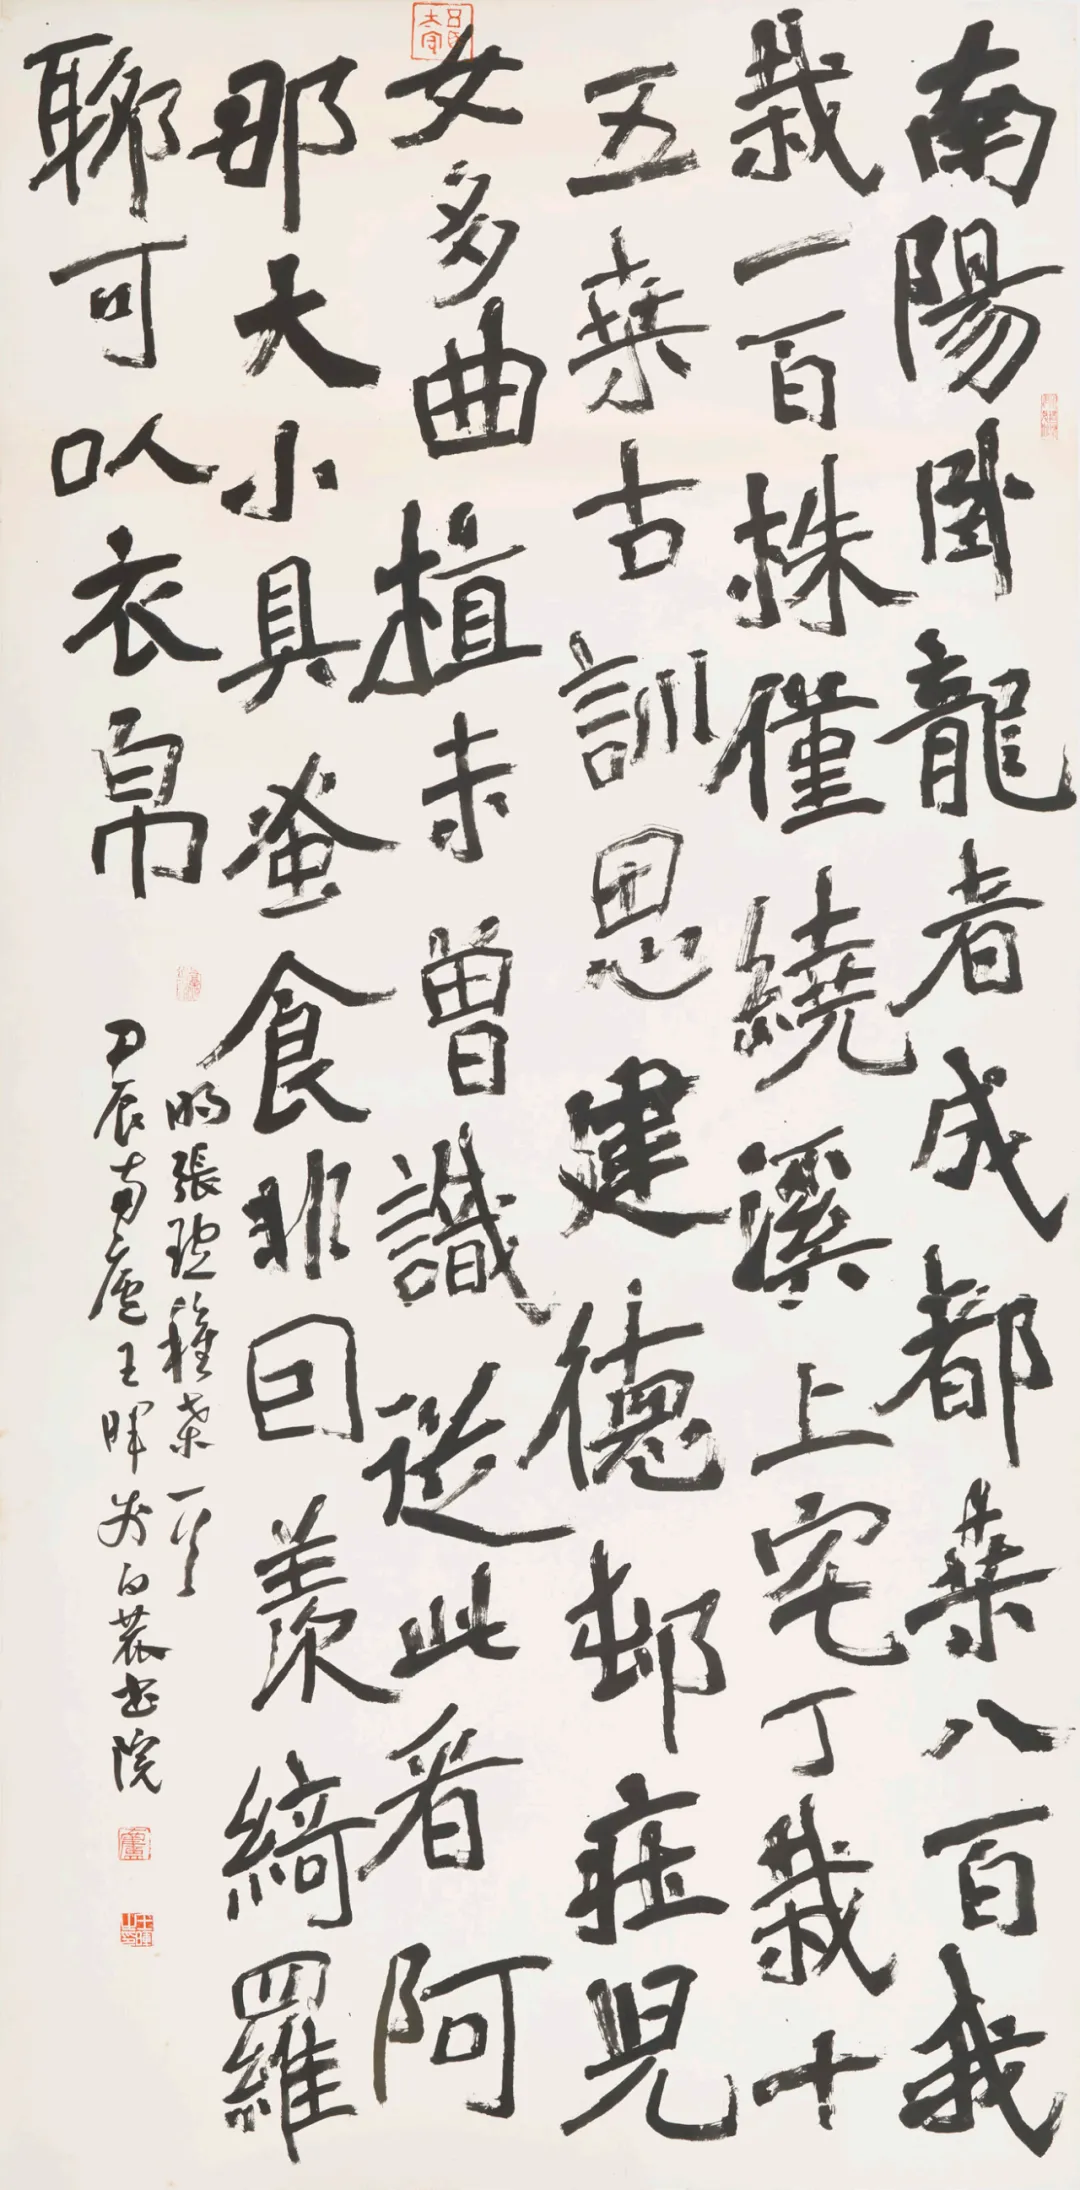 南陽卧龍者成都桑八百我
栽一百株僅繞溪上宅丁栽十
五桑古訓思建德邨莊児
女多曲植未曾識從此看阿
那大小具蚕食非曰羡綺羅
聊可以衣帛
明張琥種桒一首
甲辰南廬王暉於白農書院